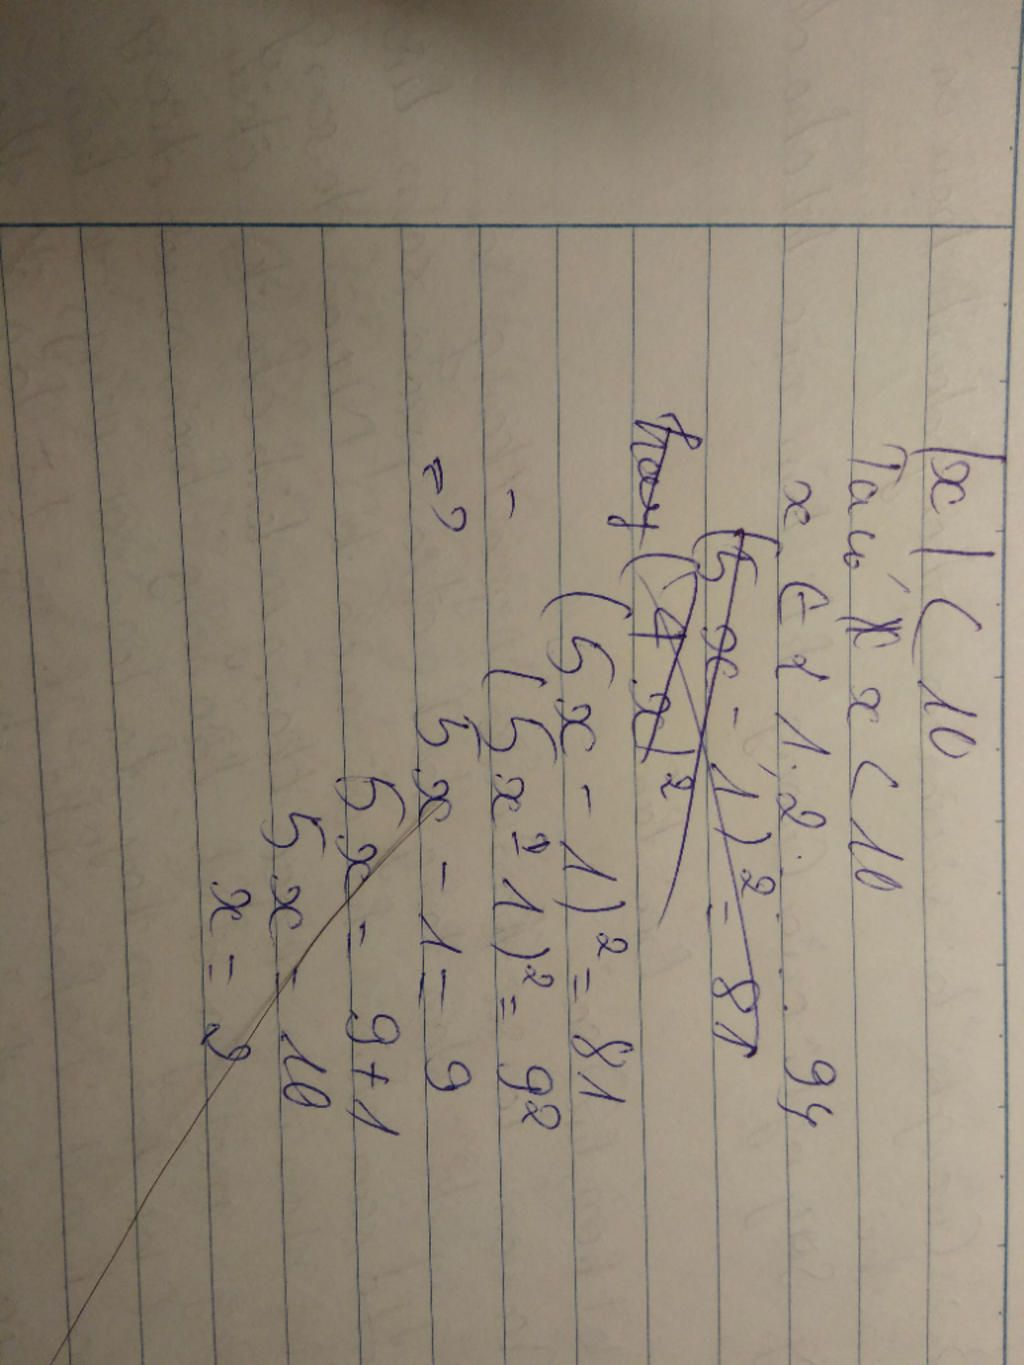 |x| < 10
x < 10
x ∈ { 1. 2. . . . 9}
(5x - 1)² = 81
(4x)²
(5x - 1)² = 81
(5x - 1)² = 9²
=> 5x - 1 = 9
5x = 9 + 1
5x = 10
x = 2